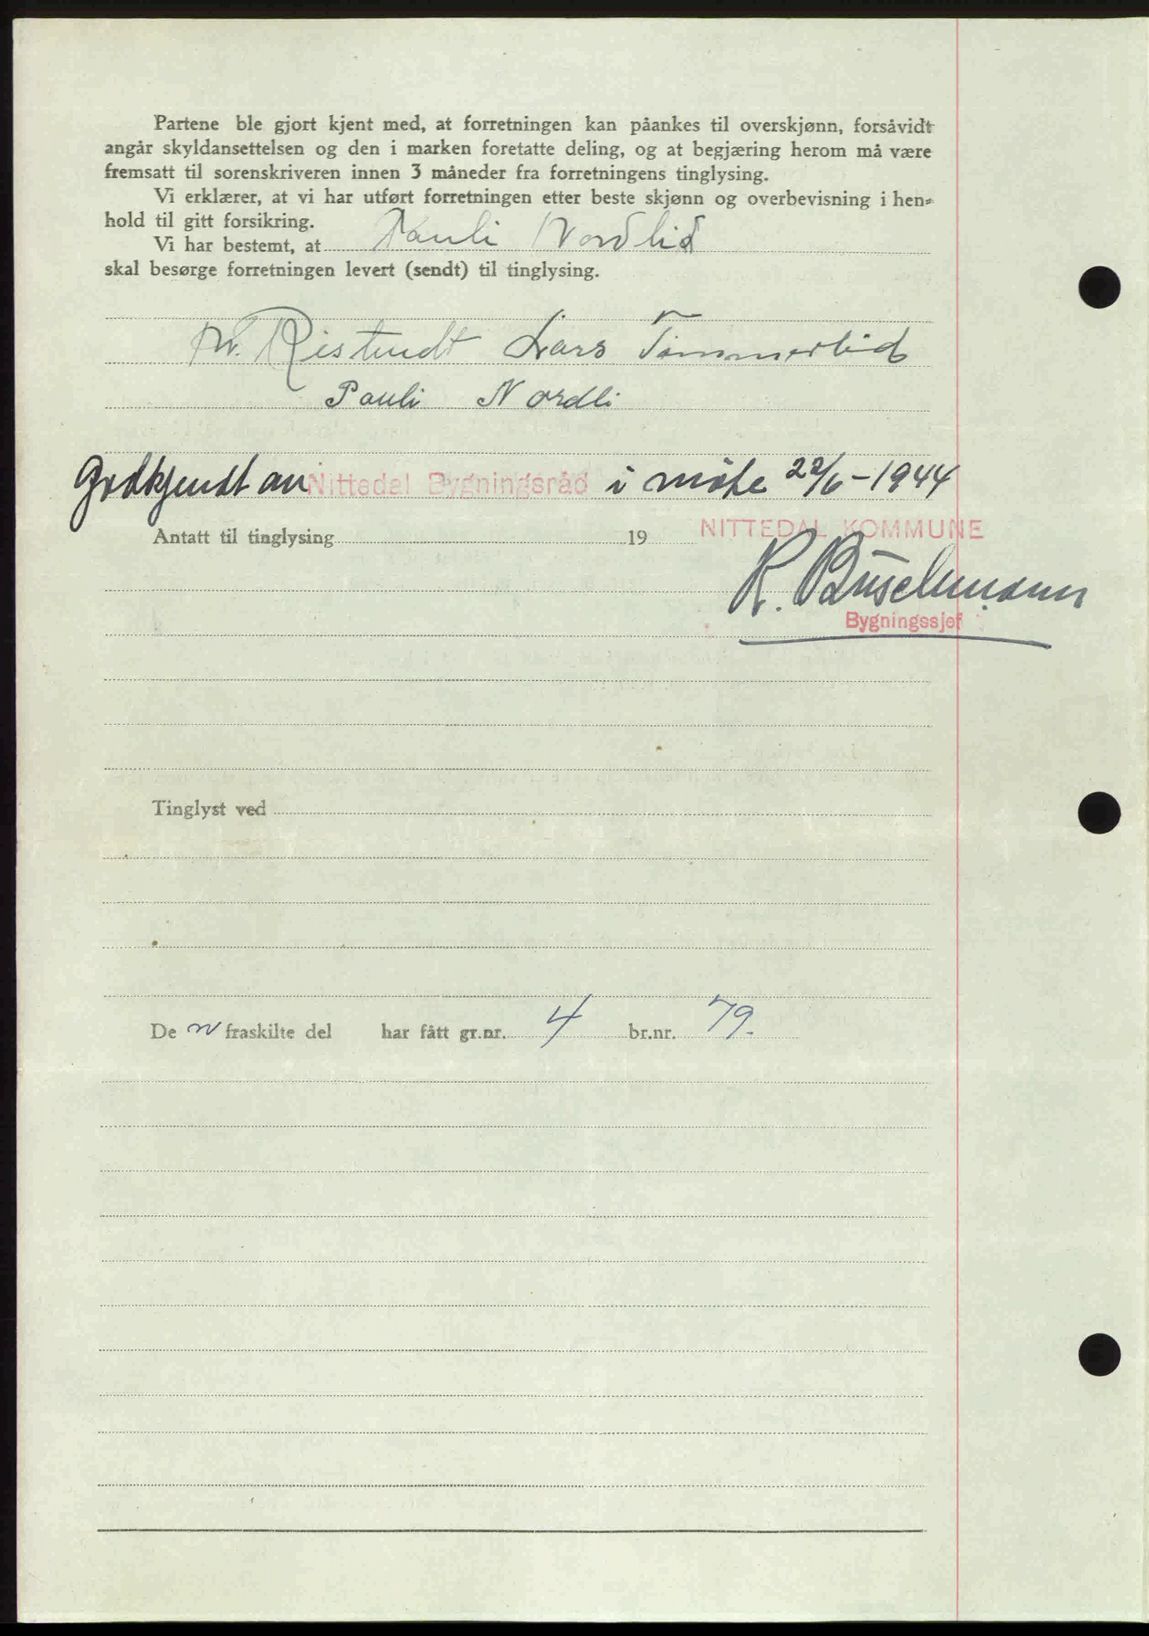 Partene ble gjort kjent med, at forretningen kan påankes til overskjønn, forsåvidt
angår skyldansettelsen og den i marken foretatte deling, og at begjæring herom må være
fremsatt til sorenskriveren innen 3 måneder fra forretningens tinglysing.
Vi erklærer, at vi har utført forretningen etter beste skjønn og overbevisning i hen-
hold til gitt forsikring.
Vi har bestemt, at Pauli Nordlid
skal besørge forretningen levert (sendt) til tinglysing.
Ristundt Lars Tømmerlid
Pauli Nordli
Godkjendt av Nittedal Bygningsråd i møte 22/6-1944
Antatt til tinglysing 19
NITTEDAL KOMMUNE
R. Buschmann
Bygningssjef
Tinglyst ved
De n fraskilte del har fått gr.nr. 4 br.nr. 79.